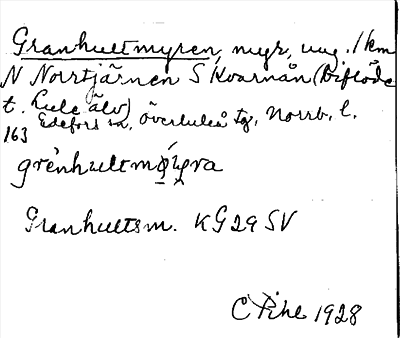 Granhultmyren, myr, ung. 1 km
N Norrtjärnen S Kvarnån (Biflöde
t. Lule älv)
Edefors sn, Överluleå tg, Norrb. l.
163
grenhultmøyra
Granhultsm. KG 29 SV
C Pihl 1928